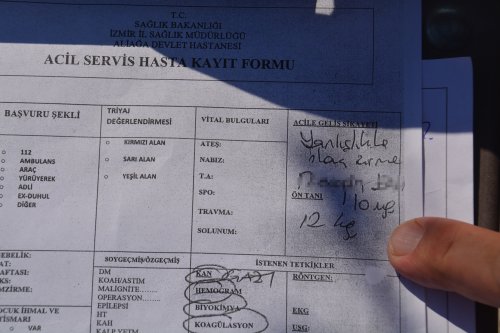 T.C.
SAĞLIK BAKANLIĞI
İZMİR İL SAĞLIK MÜDÜRLÜĞÜ
ALİAĞA DEVLET HASTANESİ
ACİL SERVİS HASTA KAYIT FORMU
BAŞVURU ŞEKLİ
112
AMBULANS
ARAÇ
YÜRÜYEREK
ADLİ
EX-DUHUL
DİĞER
TRİYAJ
DEĞERLENDİRMESİ
KIRMIZI ALAN
SARI ALAN
YEŞİL ALAN
VİTAL BULGULARI
ATEŞ:
NABIZ:
T.A:
SPO:
TRAVMA:
SOLUNUM:
ACİLE GELİŞ ŞİKAYETİ
Yanlışlıkla
ilaç içirme
ÖN TANI
110 mg
12 kg
SOYGEÇMİŞ/ÖZGEÇMİŞ
DM
KOAH/ASTIM
MALİGNİTE
OPERASYON
EPİLEPSİ
HT
KAH
İSTENEN TETKİKLER
KAN GAZI
HEMOGRAM
BİYOKİMYA
KOAGÜLASYON
RÖNTGEN:
EKG
USG:
VAR